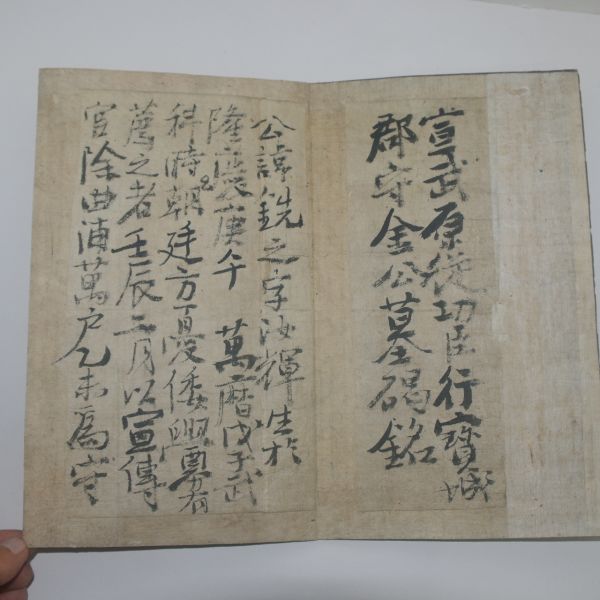 宣武原從功臣行寶城
郡守金公墓碣銘
公諱銑之字汝輝生於
隆慶庚午 萬曆戊子武
科時朝廷方憂倭興異有
薦之者壬辰二月以宣傳
官除曲浦萬戶乙未爲守